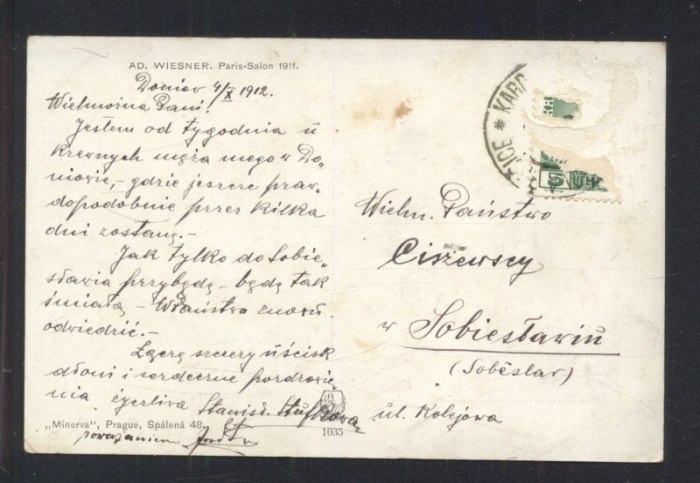 AD. WIESNER. Paris-Salon 1911.
Doniov 4/X 1912.
Wielmożna Pani!
Jestem od tygodnia u
krewnych męża mego w Do-
niowie, - gdzie jeszcze praw-
dopodobnie przez kilka
dni zostanę. -
Jak tylko do Sobie-
sławia przybędę - będę tak
śmiałą - WPaństwa znowu
odwiedzić. -
Łączę szczery uścisk
dłoni i serdeczne pozdrowie-
nia życzliwa Stanisł.
„Minerva", Prague, Spálená 48.
1035
AICE * KARD
5
Wielm. Państwo
Ciszewscy
w Sobiesławiu
(Soběslav)
ul. Kolejowa